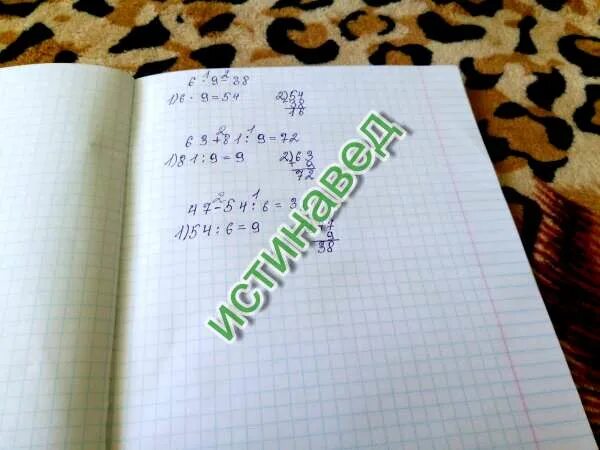 6 · 9 - 38
1) 6 · 9 = 54 2) 54
38
16
63 + 81 : 9 = 72
1) 81 : 9 = 9 2) 63
9
72
47 - 54 : 6 = 3
1) 54 : 6 = 9
9
38
ИСТИНАВЕД